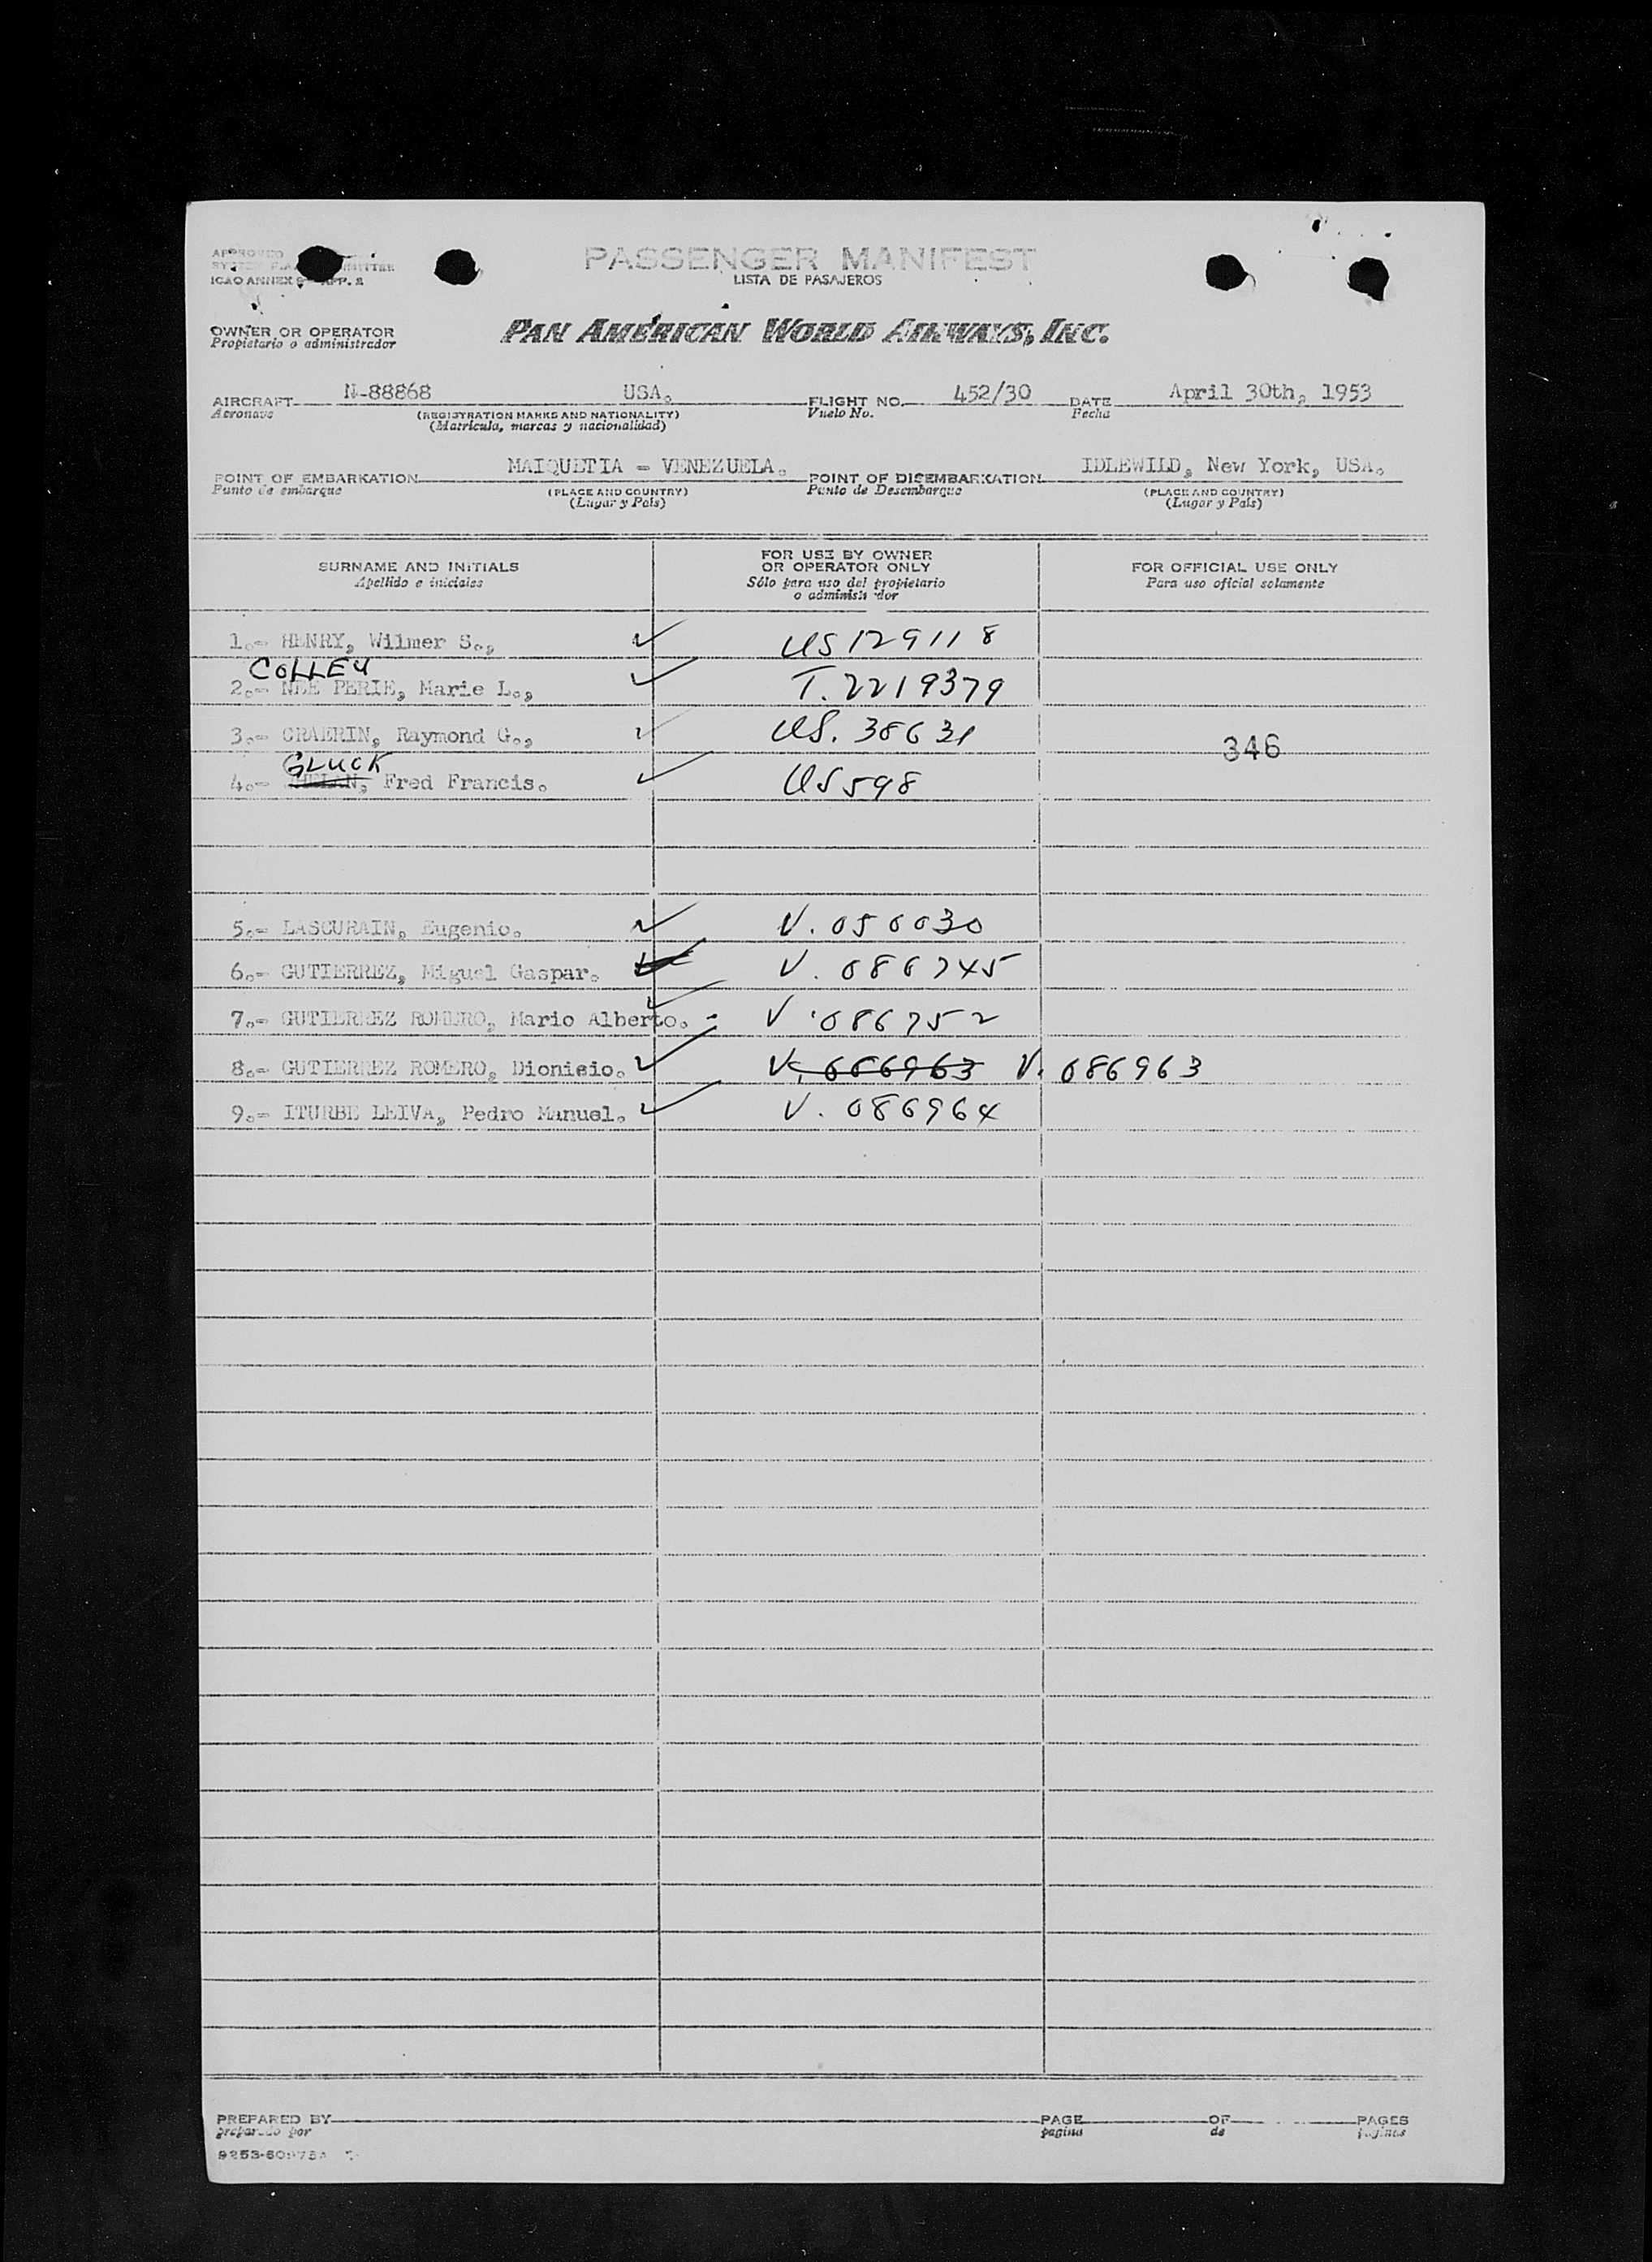 APPROVED
ICAO ANNEX 9 APP. 2
PASSENGER MANIFEST
LISTA DE PASAJEROS
OWNER OR OPERATOR
Propietario o administrador
PAN AMERICAN WORLD AIRWAYS, INC.
AIRCRAFT N-88868 USA. FLIGHT NO. 452/30 DATE April 30th, 1953
Aeronave (REGISTRATION MARKS AND NATIONALITY) Vuelo No. Fecha
(Matrícula, marcas y nacionalidad)
POINT OF EMBARKATION MAIQUETIA - VENEZUELA. POINT OF DISEMBARKATION IDLEWILD, New York, USA.
Punto de embarque (PLACE AND COUNTRY) Punto de Desembarque (PLACE AND COUNTRY)
(Lugar y País) (Lugar y País)
SURNAME AND INITIALS
Apellido e iniciales
FOR USE BY OWNER
OR OPERATOR ONLY
Sólo para uso del propietario
o administ dor
FOR OFFICIAL USE ONLY
Para uso oficial solamente
1.- HENRY, Wilmer S., ✓ US 129118
COLLEY
2.- NEE PERIE, Marie L., ✓ T. 2219379
3.- CRAERIN, Raymond G., ✓ US. 38631
346
GLUCK
4.- Fred Francis. ✓ US 598
5.- LASCURAIN, Eugenio. ✓ V. 050030
6.- GUTIERREZ, Miguel Gaspar. ✓ V. 086745
7.- GUTIERREZ ROMERO, Mario Alberto. ✓ V. 086752
8.- GUTIERREZ ROMERO, Dionisio. ✓ V. 086963 V. 086963
9.- ITURBE LEIVA, Pedro Manuel. ✓ V. 086964
PREPARED BY PAGE OF PAGES
preparado por pagina de paginas